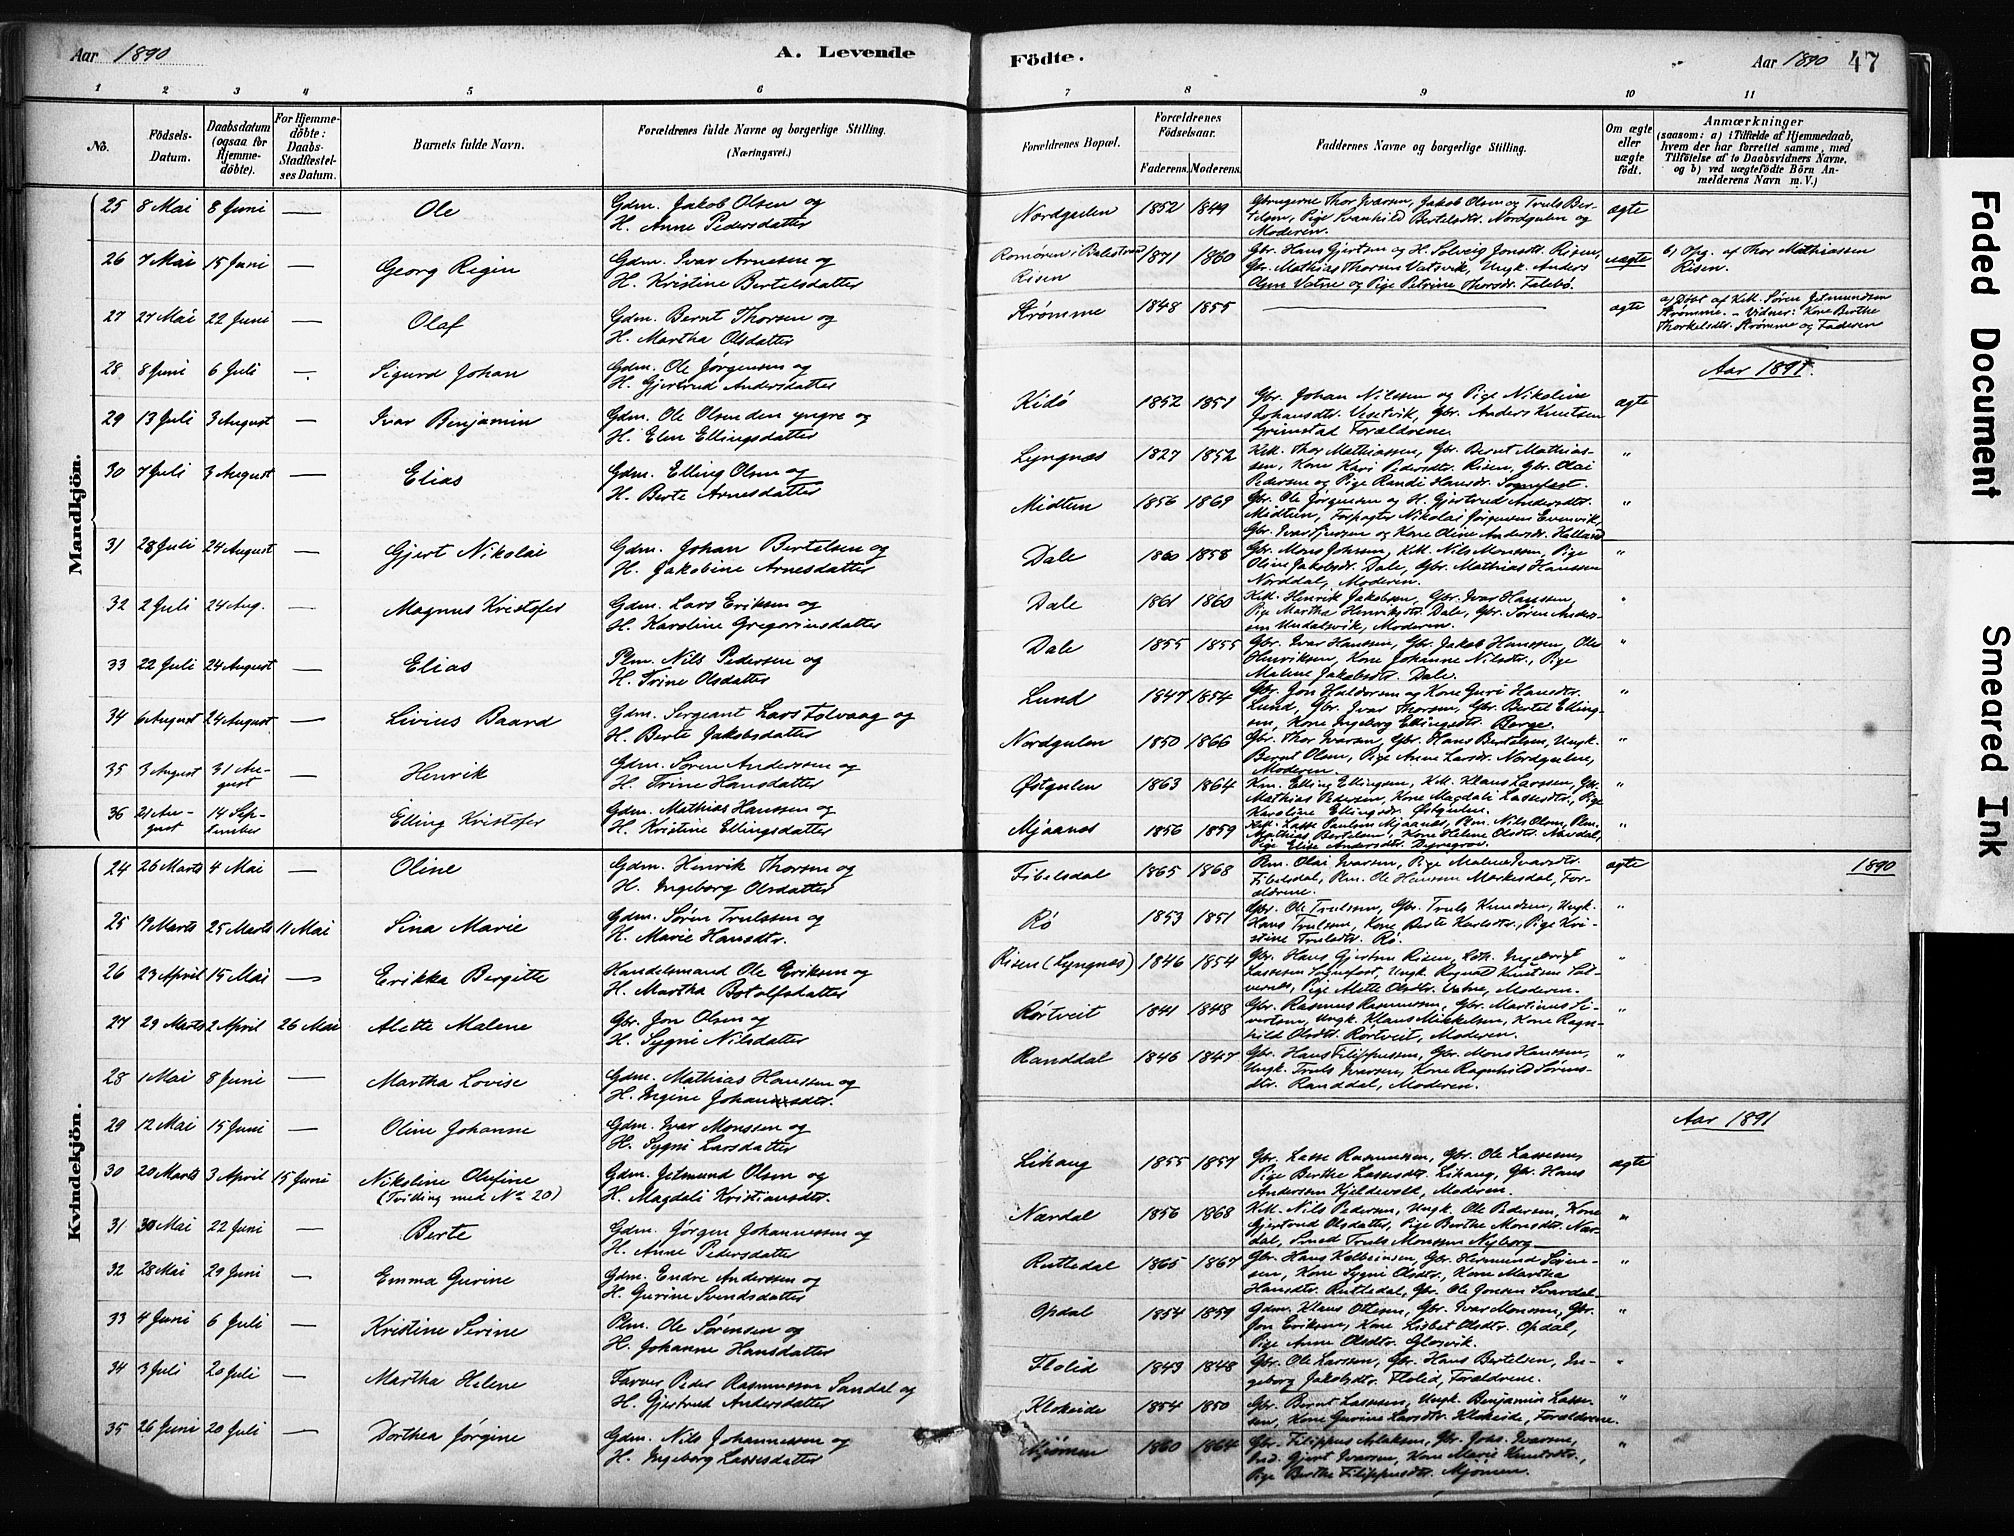 Aar 1890
A. Levende
1 2 3 4 5 6
No.
Födsels-
Datum.
Daabsdatum
(ogsaa for
Hjemme-
döbte).
For Hjemme-
döbte:
Daabs-
Stadfæstel-
ses Datum.
Barnets fulde Navn.
Forældrenes fulde Navne og borgerlige Stilling.
(Næringsvei.)
Mandkjön.
25 8 Mai 8 Juni — Ole Gdm. Jakob Olsen og
H. Anne Pedersdatter
26 7 Mai 15 Juni — Georg Regin Gdm. Ivar Arnesen og
H. Kristine Bertelsdatter
27 27 Mai 22 Juni — Olaf Gdm. Bernt Thorsen og
H. Martha Olsdatter
28 8 Juni 6 Juli — Sigurd Johan Gdm. Ole Jørgensen og
H. Gjertrud Andersdatter
29 13 Juli 3 August — Ivar Benjamin Gdm. Ole Olsen den yngre og
H. Elen Ellingsdatter
30 7 Juli 3 August — Elias Gdm. Elling Olsen og
H. Berte Arnesdatter
31 28 Juli 24 August — Gjert Nikolai Gdm. Johan Bertelsen og
H. Jakobine Arnesdatter
32 2 Juli 24 Aug. — Magnus Kristofer Gdm. Lars Eriksen og
H. Karoline Gregoriusdatter
33 22 Juli 24 August — Elias Plm. Nils Pedersen og
H. Trine Olsdatter
34 6 August 24 August — Livius Baard Gdm. Sergeant Lars Folvaag og
H. Berte Jakobsdatter
35 3 August 31 Au-
gust — Henrik Gdm. Søren Anderssen og
H. Trine Hansdatter
36 21 Au-
gust 14 Sep-
tember Elling Kristofer Gdm. Mathias Hanssen og
H. Kristine Ellingsdatter
Kvindekjön.
24 26 Marts 4 Mai — Oline Gdm. Henrik Thorsen og
H. Ingeborg Olsdatter
25 Marts 25 Marts 11 Mai Sina Marie Gdm. Søren Trulssen og
H. Marie Hansdtr.
26 23 April 15 Mai — Erikka Bergitte Handelsmand Ole Eriksen og
H. Martha Botolfsdatter
27 29 Marts 2 April 26 Mai Alette Malene Gbr. Jon Olsen og
H. Sygni Nilsdatter
28 1 Mai 8 Juni — Martha Lovise Gdm. Mathias Hanssen og
H. Ingine Johannsdtr.
29 12 Mai 15 Juni — Oline Johanne Gdm. Ivar Monssen og
H. Sygni Larsdatter
30 20 Marts 3 April 15 Juni Nikoline Olufine
(Tvilling med No 20) Gdm. Jetmund Olsen og
H. Magdeli Kristiansdtr.
31 30 Mai 22 Juni — Berte Gdm. Jørgen Johannessen og
H. Anne Pedersdatter
32 28 Mai 29 Juni — Emma Gurine Gdm. Endre Anderssen og
H. Gurine Svendsdatter
33 4 Juni 6 Juli — Kristine Serine Plm. Ole Sørensen og
H. Johanne Hansdatter
34 3 Juli 20 Juli — Martha Helene Farver Peder Rasmussen Sandal og
H. Gjertrud Andersdatter
35 26 Juni 20 Juli — Dorthea Jørgine Gdm. Nils Johannessen og
H. Ingeborg Lassesdatter
Födte.
Aar 1890 47
7 8 9 10 11
Forældrenes Bopæl.
Forældrenes
Födselsaar.
Faderens. Moderens.
Faddernes Navne og borgerlige Stilling.
Om ægte
eller
uægte
födt.
Anmærkninger
(saasom: a) i Tilfælde af Hjemmedaab,
hvem der har forrettet samme, med
Tilföielse af to Daabsvidners Navne,
og b) ved uægtefödte Börn An-
melderens Navn m. V.)
Nordgulen 1852 1849 Gbrugerne Thor Ivarsen, Jakob Olsen og Truls Ber-
telsen, Pige Svanhild Bertelsdtr. Nordgulen og
Moderen. ægte
Romøren i Balestrand
Risen 1871 1860 Gbr. Hans Gjertsen og H. Solveig Jonsdtr. Risen,
Gbr. Mathias Thorsen Vatsvik, Ungk. Anders
Olsen Vatne og Pige Petrine Thorsdr. Falebø. uægte b) Opg. af Thor Mathiassen
Risen.
Strømme 1848 1855 — ægte a) Døbt af Kk. Søren Jetmundsen
Strømme. — Vidner: Kone Berthe
Thorkelsdtr. Strømme og Faderen
Aar 1891.
Kidø 1852 1851 Gbr. Johan Nilssen og Pige Nikoline
Johansdtr. Visetvik, Gbr. Anders Knutsen
Grimstad Forældrene. ægte
Lyngnæs 1827 1852 Kk. Thor Mathiassen, Gbr. Bernt Mathias-
sen, Kone Kari Pedersdtr. Risen, Gbr. Olai
Pedersen og Pige Randi Hansdr. Sognefest. "
Midtun 1856 1869 Gbr. Ole Jørgensen og H. Gjertrud Andersdtr.
Midtun, Forpagter Nikolai Jørgensen Evenvik,
Gbr. Ivar Iversen og Kone Oline Andersdr. Helland "
Dale 1860 1858 Gbr. Mons Johnsen, Kk. Nils Monssen, Pige
Oline Jakobsdr. Dale, Gbr. Mathias Hanssen
Norddal, Moderen. "
Dale 1861 1860 Kk. Henrik Jakobsen, Gbr. Ivar Hanssen,
Pige Martha Henriksdtr. Dale, Gbr. Søren Anders-
sen Undalsvik, Moderen. "
Dale 1855 1855 Gbr. Ivar Hanssen, Gbr. Jakob Hanssen, Ole
Henriksen, Kone Johanne Nilsdtr., Pige
Malene Jakobsdtr. Dale. "
Lund 1847 1854 Gbr. Jon Haldorsen og Kone Guri Hansdtr.
Lund, Gbr. Ivar Thorsen, Gbr. Bertel Elling-
sen, Kone Ingeborg Ellingsdtr. Berge. "
Nordgulen 1850 1866 Gbr. Thor Ivarsen, Gbr. Hans Bertelsen, Ungk.
Bernt Olsen, Pige Anne Larsdr. Nordgulen,
Moderen. "
Østgulen 1863 1864 Km. Elling Ellingsen, Kk. Klaus Larssen, Gbr.
Mathias Pedersen, Kone Magdali Lassesdtr., Pige
Karoline Ellingsdr. Østgulen. "
Mjaanes 1856 1859 Kk. Lasse Paulsen Mjaanes, Plm. Nils Olsen, Plm.
Mathias Bertelsen, Kone Helene Olsdtr. Nordal,
Pige Elise Andersdtr. "
1890
Fibelsdal 1865 1868 Plm. Olai Ivarsen, Pige Malene Ivarsdtr.
Fibelsdal, Plm. Ole Hanssen Markesdal, For-
ældrene. ægte
Rø 1853 1851 Gbr. Ole Trulssen, Gbr. Truls Knudsen, Ungk.
Hans Trulssen, Kone Berte Karlsdtr., Pige Kri-
stine Trulsdtr. Rø. "
Risen (Lyngnæs) 1846 1854 Gbr. Hans Gjertsen Risen, Ingebrigt
Lassesen Sognefest, Ungk. Ragnald Knutsen Sel-
vernes, Pige Mette Olsdtr. Vatne, Moderen. "
Rørtveit 1841 1848 Gbr. Rasmus Rasmussen, Gbr. Martinus Si-
vertsen, Ungk. Klaus Mikkelsen, Kone Ragn-
hild Olsdtr. Rørtveit, Moderen. "
Randdal 1846 1847 Gbr. Hans Filippussen, Gbr. Mons Hanssen,
Ungk. Truls Ivarsen, Kone Ragnhild Sørens-
dtr. Randdal, Moderen. "
Aar 1891
Lihaug 1855 1857 Gbr. Lasse Rasmussen, Gbr. Ole Lassesen,
Pige Berthe Lassesdtr. Lihaug, Gbr. Hans
Anderssen Kjeldevold, Moderen. ægte
Nordal 1856 1868 Kk. Nils Pedersen, Ungk. Ole Pedersen, Kone
Gjertrud Olsdatter, Pige Berthe Monsdtr. Nor-
dal, Smed Truls Monssen Nyborg "
Rutledal 1865 1867 Gbr. Hans Kolbeinsen, Gbr. Hermund Søren-
sen, Kone Sygni Olsdtr., Kone Martha
Hansdtr. Rutledal, Gbr. Ole Jonsen Svardal "
Opdal 1854 1859 Gdm. Klaus Ottesen, Gbr. Ivar Monssen, Gbr.
Jon Eriksen, Kone Lisbet Olsdtr. Opdal,
Pige Anne Olsdtr. Glosvik. "
Flolid 1843 1848 Gbr. Ole Larssen, Gbr. Hans Bertelsen, In-
geborg Jakobsdtr. Flolid, Forældrene. "
Klokeide 1854 1850 Gbr. Bernt Lassesen, Ungk. Benjamin Lasse-
sen, Kone Gurine Larsdtr. Klokeide, Forældrene. "
Mjømen 1860 1864 Gbr. Filippus Aslaksen, Gbr. Johs. Ivarsen,
Ind. Gjert Ivarsen, Kone Marie Knutsdtr.,
Pige Berthe Filippusdtr. Mjømen. "
Faded Document
Smeared Ink